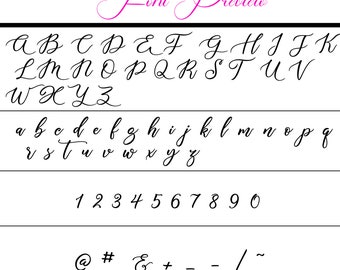 Font Preview
A B C D E F G H I J K
L M N O P Q R S T U V
W X Y Z
a b c d e f g h i j k l m n o p q
r s t u v w x y z
1 2 3 4 5 6 7 8 9 0
@ # & + - _ / ~